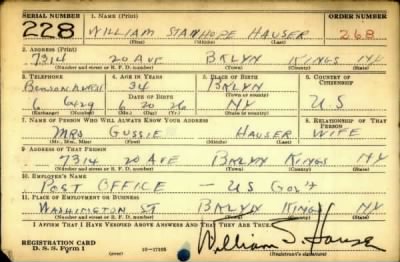 SERIAL NUMBER 1. NAME (Print) ORDER NUMBER
228 WILLIAM STANHOPE HAUSER 268
(First) (Middle) (Last)
2. ADDRESS (Print)
7314 20 AVE BKLYN KINGS NY
(Number and street or R. F. D. number) (Town) (County) (State)
3. TELEPHONE 4. AGE IN YEARS 5. PLACE OF BIRTH 6. COUNTRY OF CITIZENSHIP
34 BKLYN
DATE OF BIRTH (Town or county)
6 NY U.S
(Exchange) (Number) (Mo.) (Day) (Yr.) (State or country)
7. NAME OF PERSON WHO WILL ALWAYS KNOW YOUR ADDRESS 8. RELATIONSHIP OF THAT PERSON
MRS GUSSIE HAUSER WIFE
(Mr., Mrs., Miss) (First) (Middle) (Last)
9. ADDRESS OF THAT PERSON
7314 20 AVE BKLYN KINGS NY
(Number and street or R. F. D. number) (Town) (County) (State)
10. EMPLOYER'S NAME
POST OFFICE — US GOV'T
11. PLACE OF EMPLOYMENT OR BUSINESS
WASHINGTON ST BKLYN KINGS NY
(Number and street or R. F. D. number) (Town) (County) (State)
I AFFIRM THAT I HAVE VERIFIED ABOVE ANSWERS AND THAT THEY ARE TRUE.
REGISTRATION CARD William S. Hauser
D. S. S. Form 1 (over) (Registrant's signature)